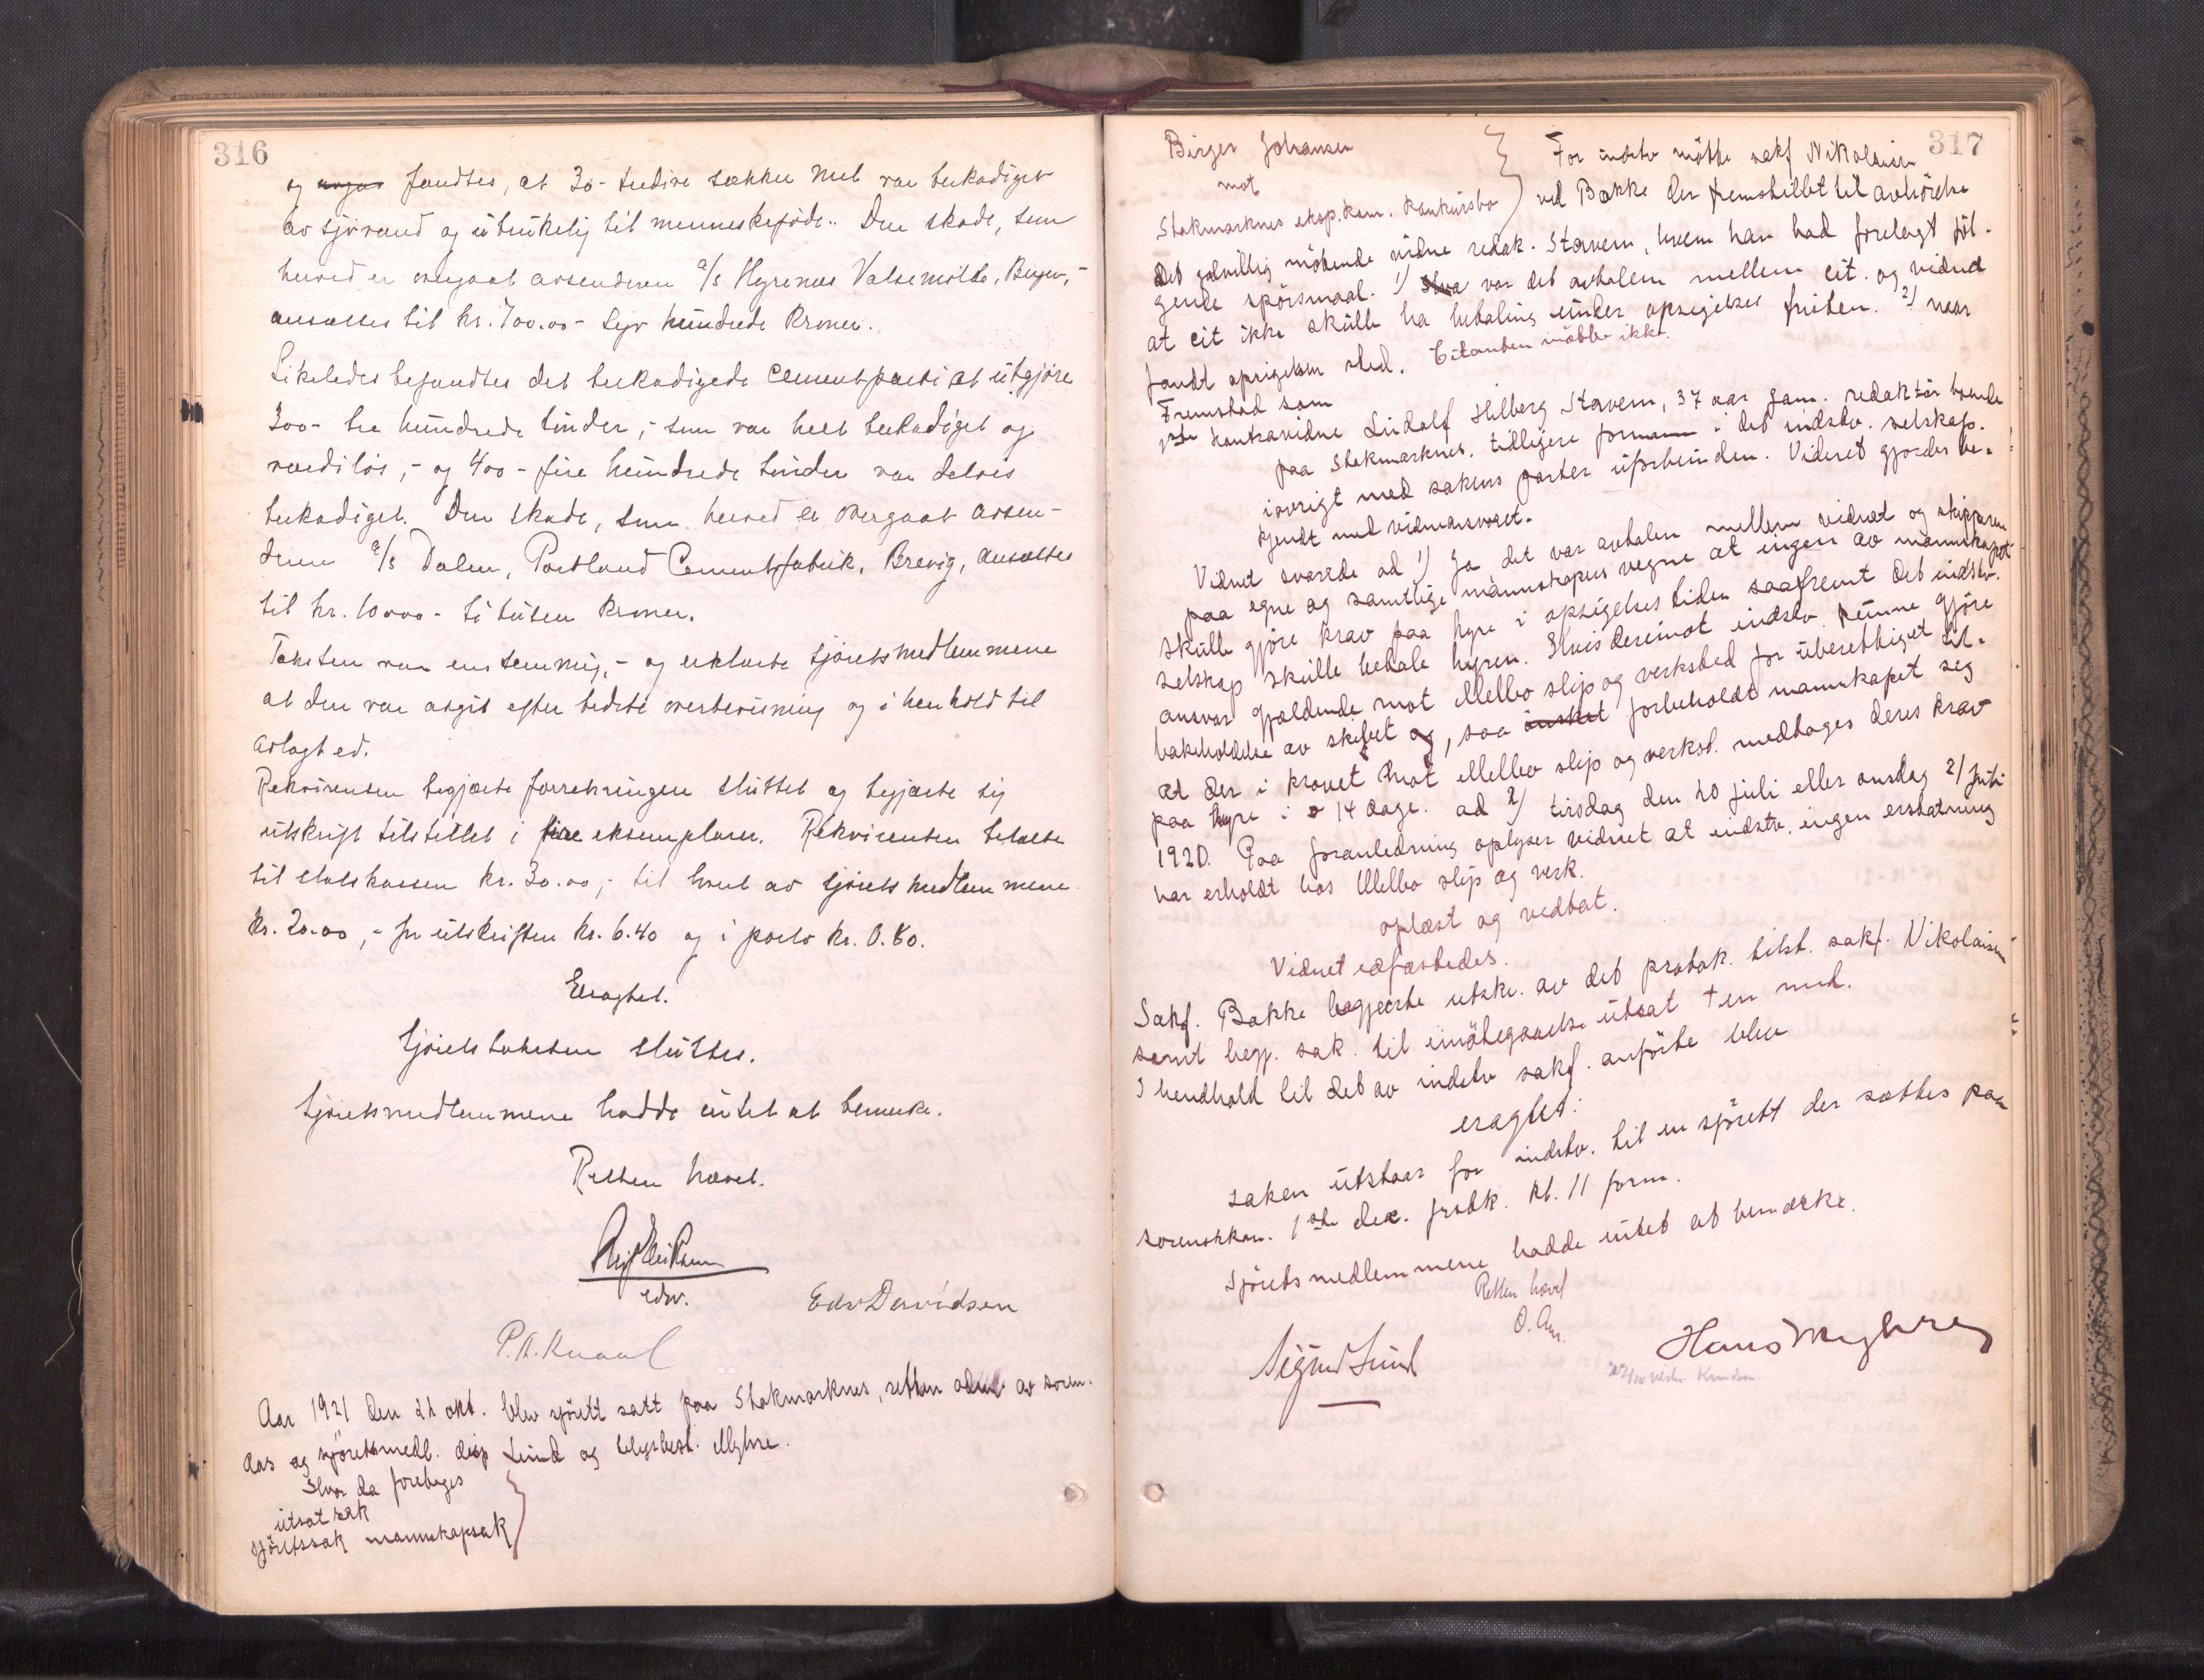 316
og fandtes, at 30- tredive sækker mel var beskadiget
av sjövand og ubrukelig til menneskeføde. Den skade, som
herved er overgaat avsenderen a/s Hyrenes Valsemölle, Bergen,-
ansattes til kr. 700.00- syv hundrede kroner.
Likeledes befandtes det beskadigede cementparti at utgjöre
300- tre hundrede tönder,- som var helt beskadiget og
verdilös,- og 400- fire hundrede tönder var delvis
beskadiget. Den skade, som herved er overgaat avsen-
deren a/s Dalen, Portland Cementfabrik, Brevig, ansattes
til kr. 10000- ti tusen kroner.
Taksten var enstemmig,- og erklærte sjöretsmedlemmene
at den var avgit efter bedste overbevisning og i henhold til
avlagt ed.
Rekvirenten begjærte forretningen sluttet og begjærte sig
utskrift tilstillet i fire eksemplarer. Rekvirenten betalte
til statskassen kr. 30.00,- til hvert av sjöretsmedlemmene
kr. 20.00,- for utskriften kr. 6.40 og i porto kr. 0.80.
Eragtet.
Sjöretstaksten sluttes.
Sjöretsmedlemmene hadde intet at bemerke.
Retten hævet.
edsv.
Edv Davidsen
P.A. Knaal
Aar 1921 den 21 okt. blev sjörett satt paa Stokmarknes, retten adm. av soren.
Aas og sjöretsmedl. disp Lund og telegrbest. Myhre.
Hvor da foretoges
utsat sak
sjöretssak mannskapsak
317
Birger Johansen
mot
Stokmarknes eksp.kom. konkursbo
For indstv mötte sakf Nikolaisen
ved Bakke der fremstillet til avhörelse
det godvillig mötende vidne redak. Stavem, hvem han had forelagt föl-
gende spörsmaal. 1) var det avtalem mellem cit. og vidnet
at cit ikke skulle ha betaling under opsigelses fristen. 2) naar
fandt opsigelsen sted. Citanten mötte ikke.
Fremstod som
1ste kontravidne Lindolf Hilberg Stavem, 37 aar gam. redaktör boende
paa Stokmarknes. tidligere formann i det indstv. selskap.
iövrigt med sakens parter uforbunden. Vidnet gjordes be-
kjendt med vidneansvaret.
Vidnet svarede ad 1) Ja det var avtalen mellem vidnet og skipperen
paa egne og samtlige mannskapers vegne at ingen av mannskapet
skulle gjöre krav paa hyre i opsigelses tiden saafremt det indstv.
selskap skulle betale hyren. Hvis derimot indstv. kunne gjöre
ansvar gjældende mot Melbo slip og verksted for uberettiget til-
bakeholdelse av skibet og, saa önsket forbeholdt mannskapet seg
at der i kravet mot Melbo slip og verkst. medtages deres krav
paa hyre i 14 dage. ad 2) tirsdag den 20 juli eller onsdag 21 juli
1920. Paa foranledning oplyser vidnet at indstv. ingen erstatning
har erholdt hos Melbo slip og verk.
oplæst og vedtat.
Vidnet edfæstedes.
Sakf. Bakke begjærte utskr. av det protok. tilst. sakf. Nikolaisen
samt begj. sak. til imötegaaelse utsat 1 en mnd.
I hendhold til det av indstv sakf. anförte blev
eragtet:
saken utstaar for indstv. til en sjörett der sættes paa
sorenskkon. 1ste dec. frstk. kl. 11 form.
Sjöretsmedlemmene hadde intet at bemærke.
Retten hævet
O. Aas.
Sigurd Lund
Hans Myhre